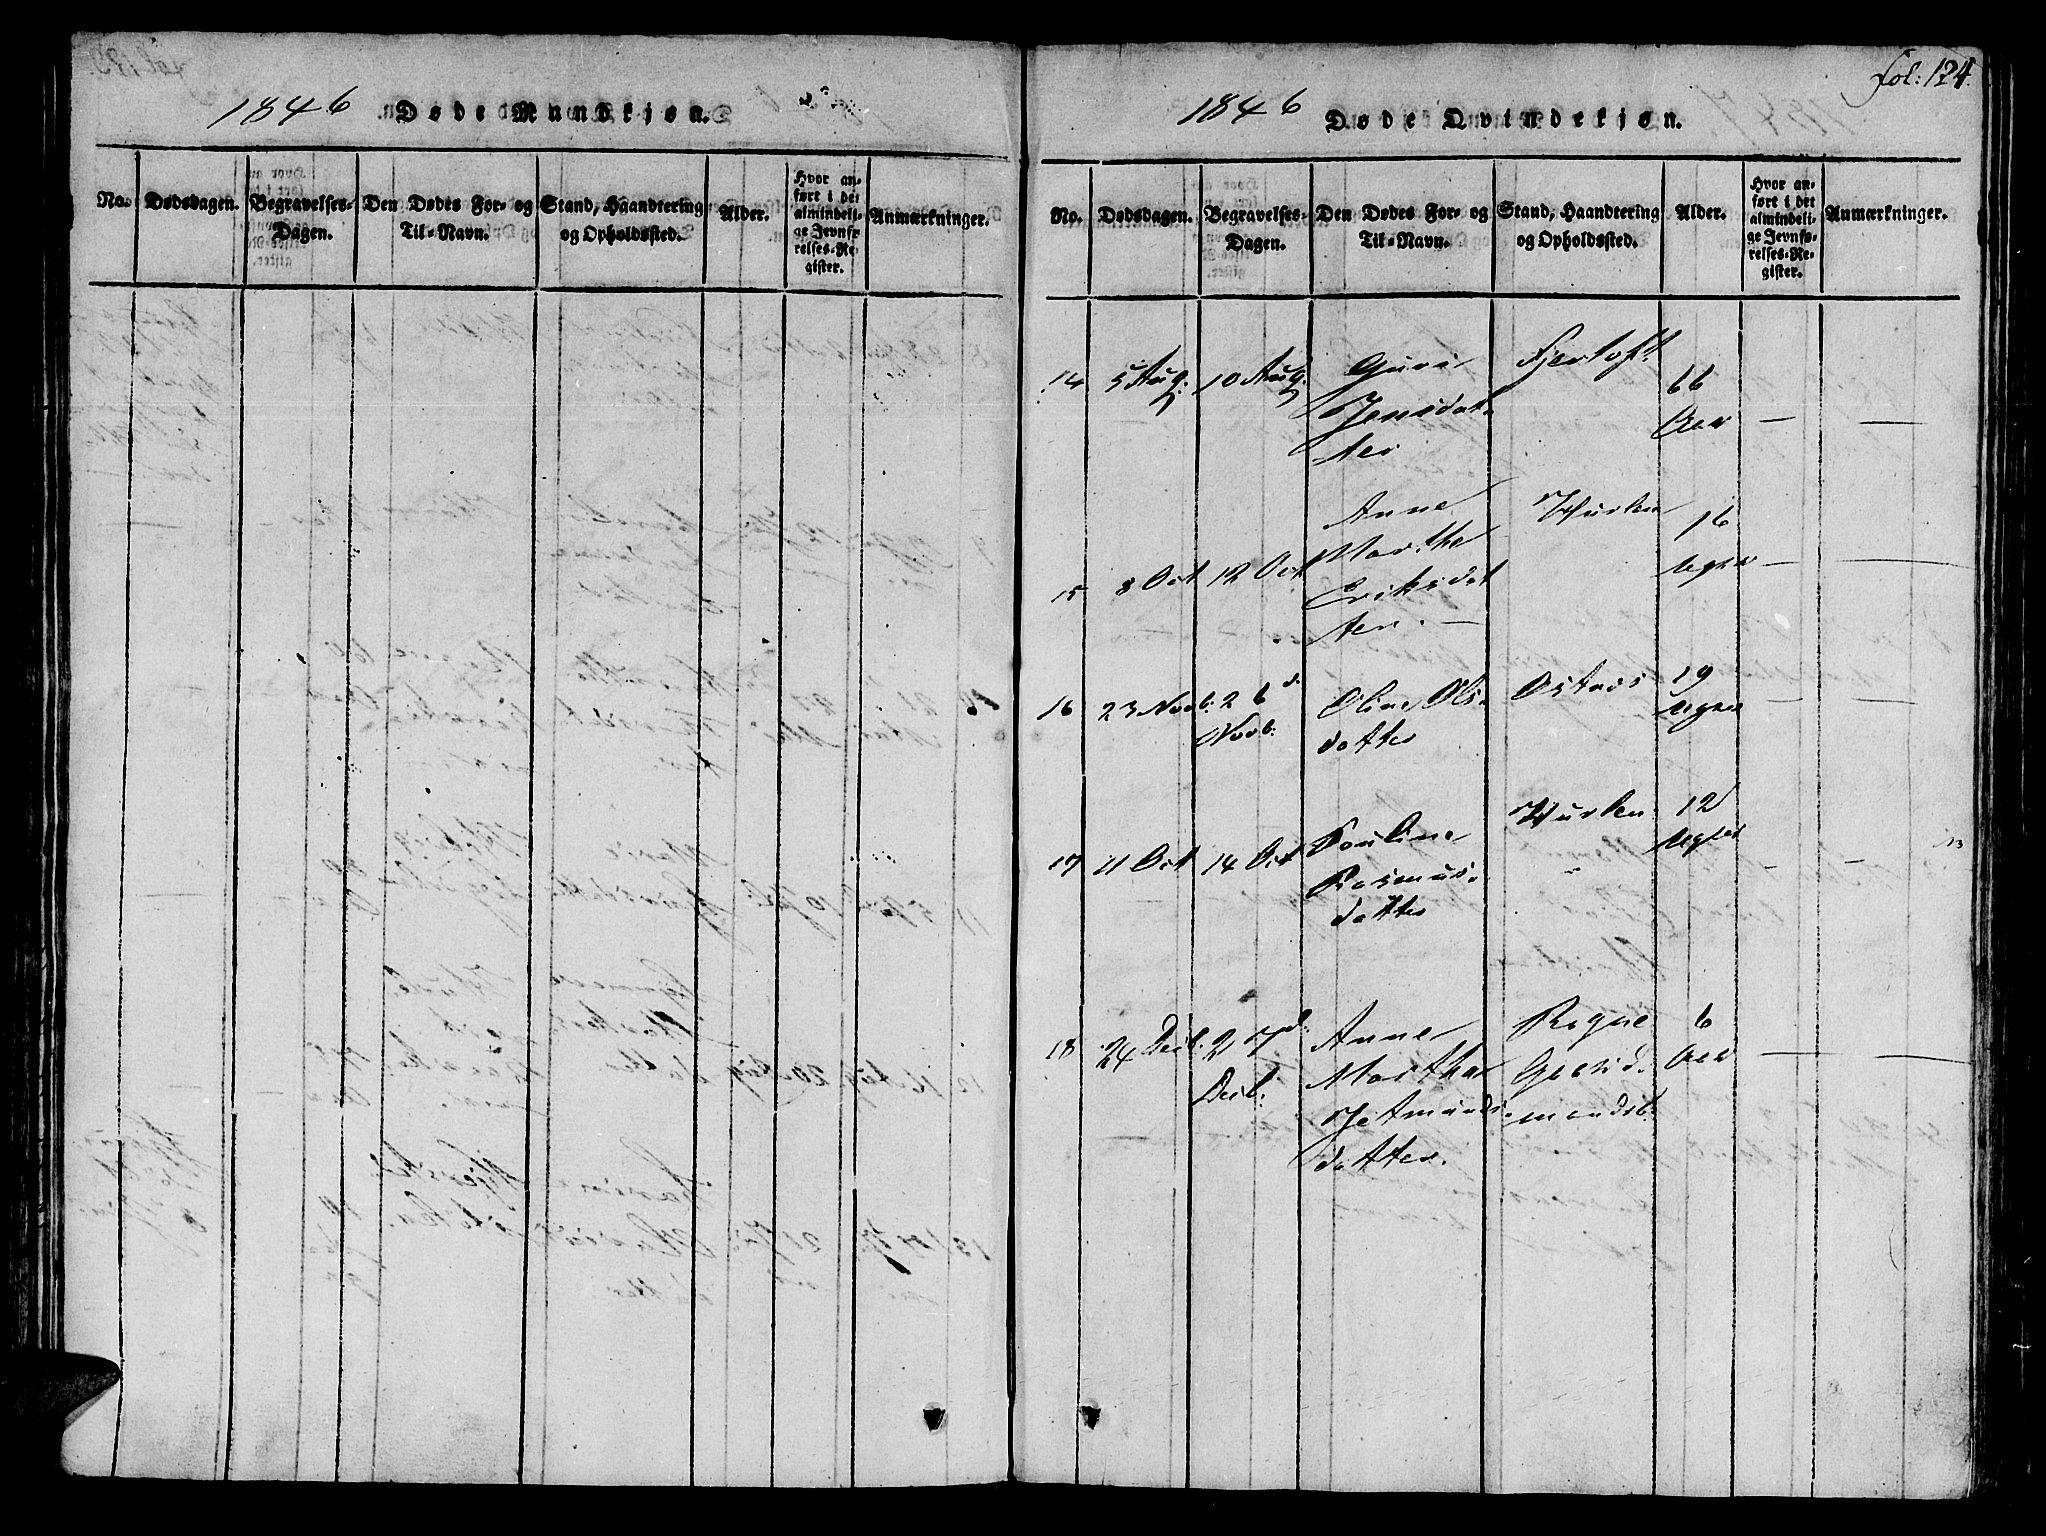 fol: 124.
1846 Døde Mandkjøn.
No. Dødsdagen. Begravelses-Dagen. Den Dødes For- og Til-Navn. Stand, Haandtering og Opholdssted. Alder. Hvor anført i det almindelige Jevnførelses-Register. Anmærkninger.
1846 Døde Qvindekjøn.
No. Dødsdagen. Begravelses-Dagen. Den Dødes For- og Til-Navn. Stand, Haandtering og Opholdssted. Alder. Hvor anført i det almindelige Jevnførelses-Register. Anmærkninger.
14 5 Aug: 10 Aug. Guri Jensdatter Fjertoft 66 Aar — —
15 8 Oct 12 Oct Anne Marthe Eriksdatter. — 16 Uger — —
16 23 Novb: 26 d. Novb: Oline Olsdatter Ostnes 19 Uger — —
17 11 Oct 14 Oct Pouline Rasmusdatter 12 Uger — —
18 24 Decb: 27 d. Decb: Anne Marthe Jetmundsdatter. Rogne 6 Aar — —